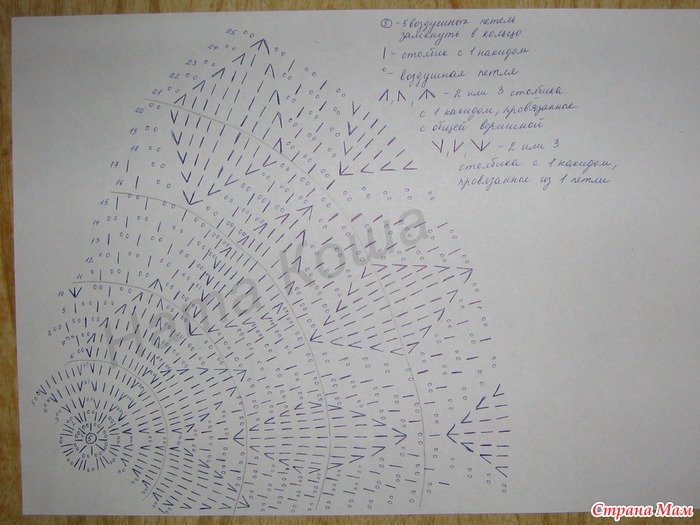 ⑤ - 5 воздушных петель
замкнуть в кольцо
| - столбик с 1 накидом
° - воздушная петля
- 2 или 3 столбика
с 1 накидом, провязанные
с общей вершиной
- 2 или 3
столбика с 1 накидом,
провязанные из 1 петли
25
24
23
22
21
20
19
18
17
16
15
14
13
12
11
10
5
Ната Коша
Страна Мам